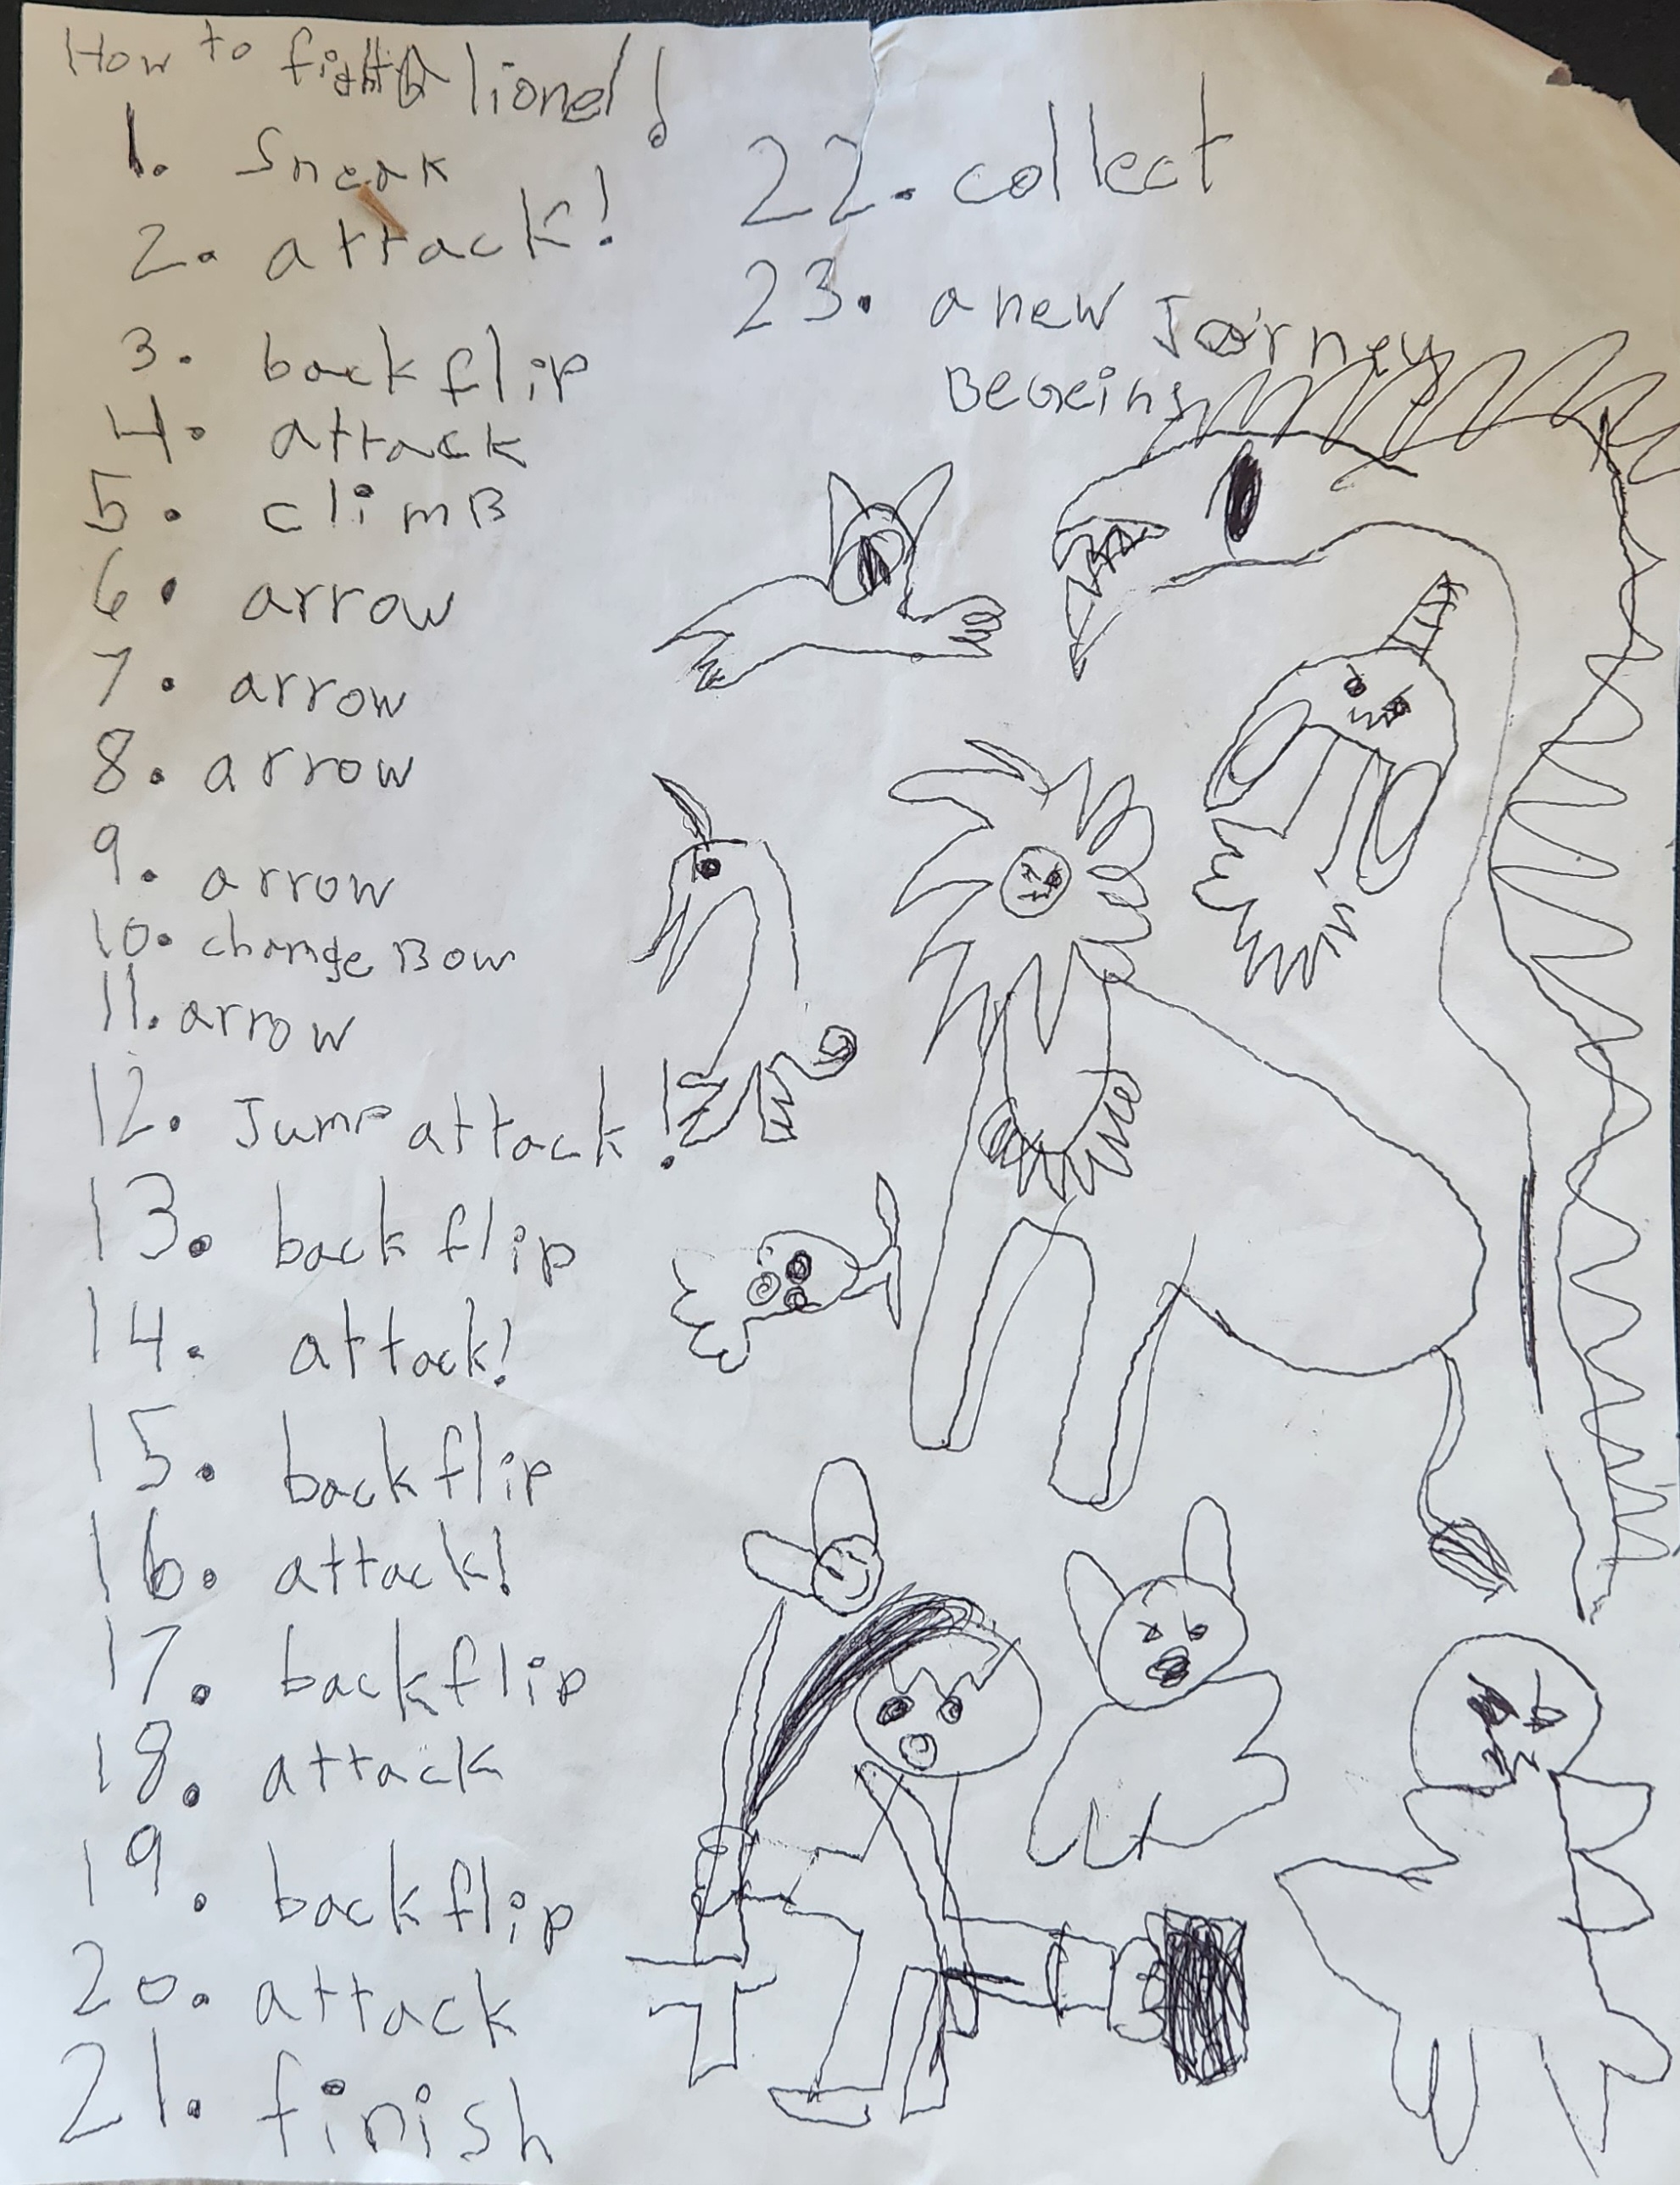 How to fight a lionel!
1. Sneak
2. attack!
3. back flip
4. attack
5. climB
6. arrow
7. arrow
8. arrow
9. arrow
10. change Bow
11. arrow
12. Jump attack!
13. back flip
14. attack!
15. back flip
16. attack!
17. back flip
18. attack
19. back flip
20. attack
21. finish
22. collect
23. a new Joirney
BeGeins